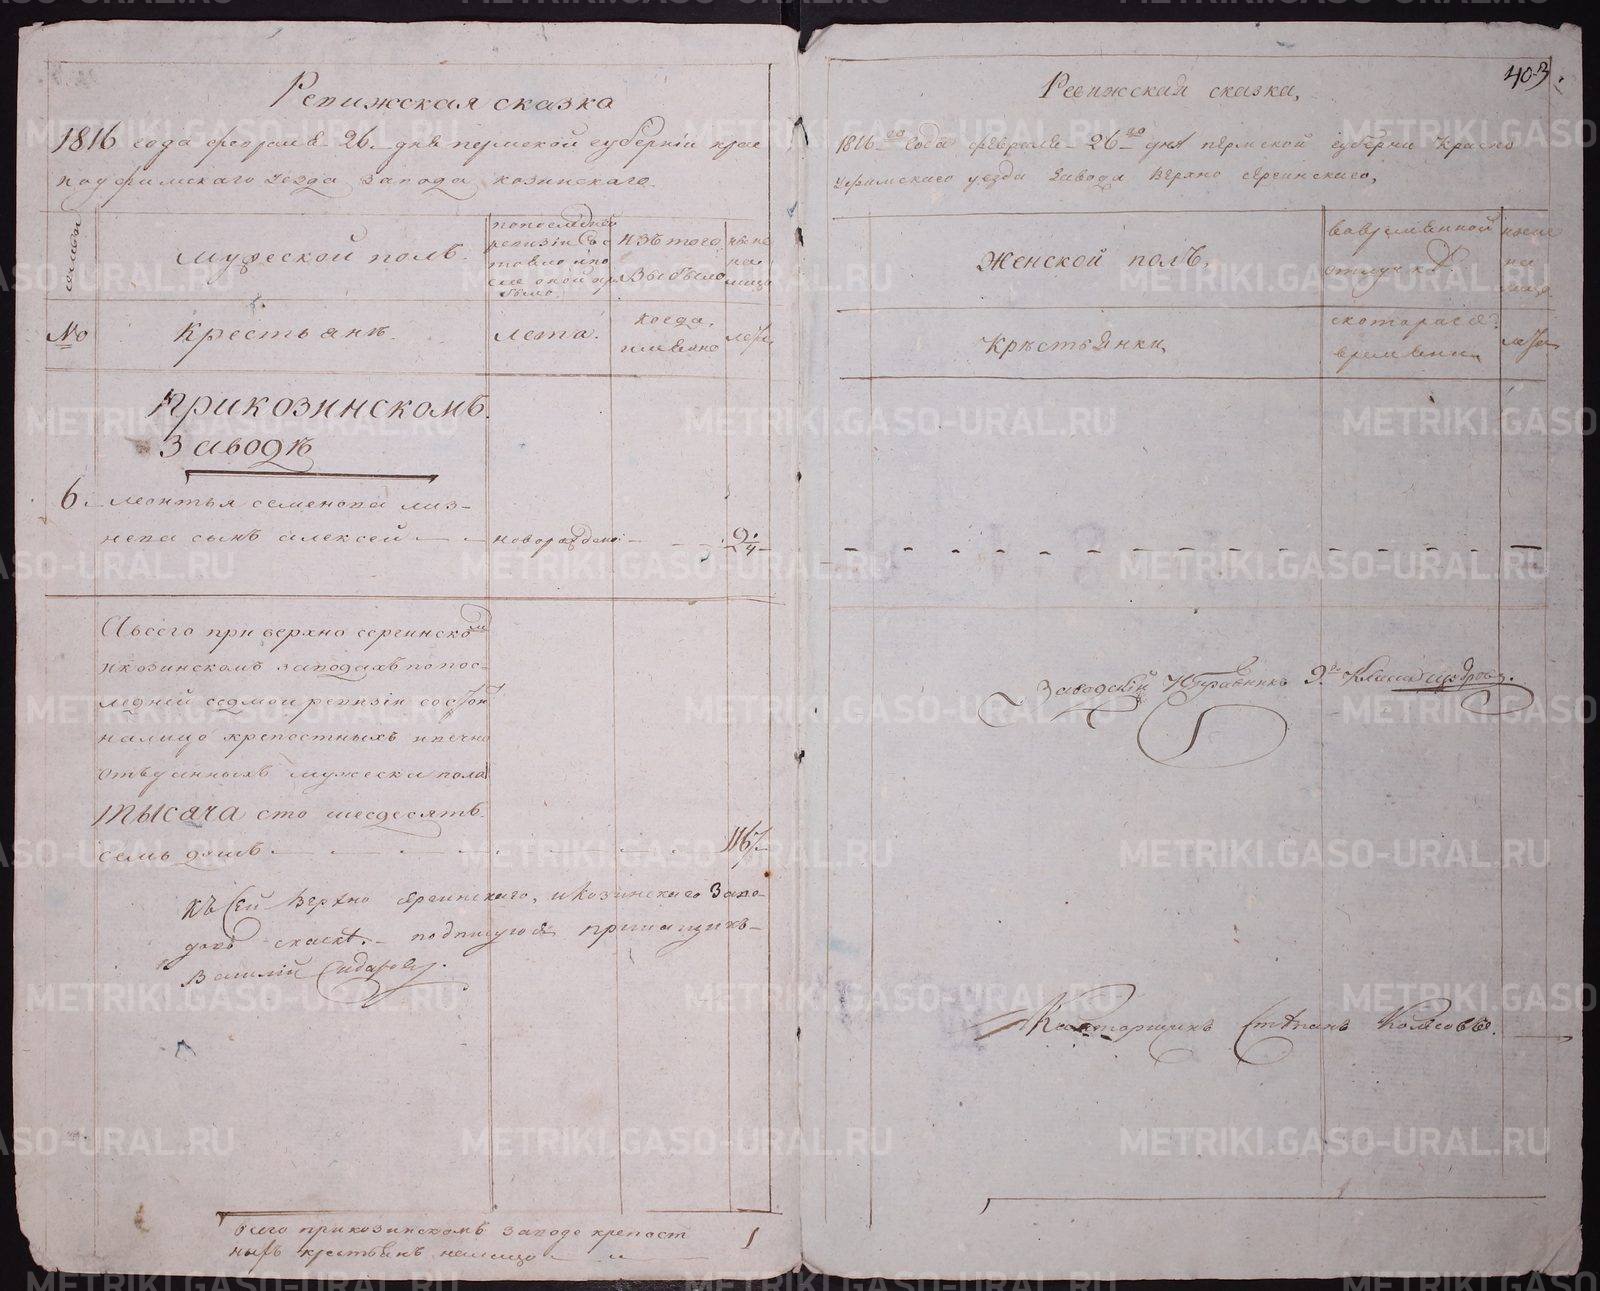 Ревижская сказка
1816 года февраля 26. дня пермской губернїи крас
ноуфимскаго уезда завода козинскаго.
семьи
мужеской полъ.
попоследней
ревизїи сос
тояло ипо
сле оной пр
было
изъ того
выбыло
ныне
на
лицо
№
Крестьянъ.
лета.
когда,
имянно
лета
При козинскомъ
Заводѣ
6. леонтья семенова лиз-
нева сынъ алексей — — новорожденої — - - 2/4
Авсего при верхно сергинском
икозинскомъ заводахъ попос-
ледней седмой ревизїи состои
налицо крепостныхъ ивечно
отъданныхъ мужеска пола
тысяча сто шесдесятъ
семь душъ. 1167
Къ Сей Верхно сергинскаго, икозинскаго Заво-
довъ скаске. подписуюсь прикащикъ
Василїй Сидоровъ.
Всего прикозинскомъ заводе крепост
ныхъ крестьянъ налицо — 1
403.
Ревижская сказка,
1816го года февраля 26го дня пермской губернии Красно
уфимскаго уезда Завода Верхно сергинскаго,
Женской полъ,
вовременной
отлучке.
ныне
на
лицо
Крестьянки,
скотораго
времени
лета
Заводскїй Исправникъ
Канторщикъ Степанъ Колесовъ.
METRIKI.GASO-URAL.RU